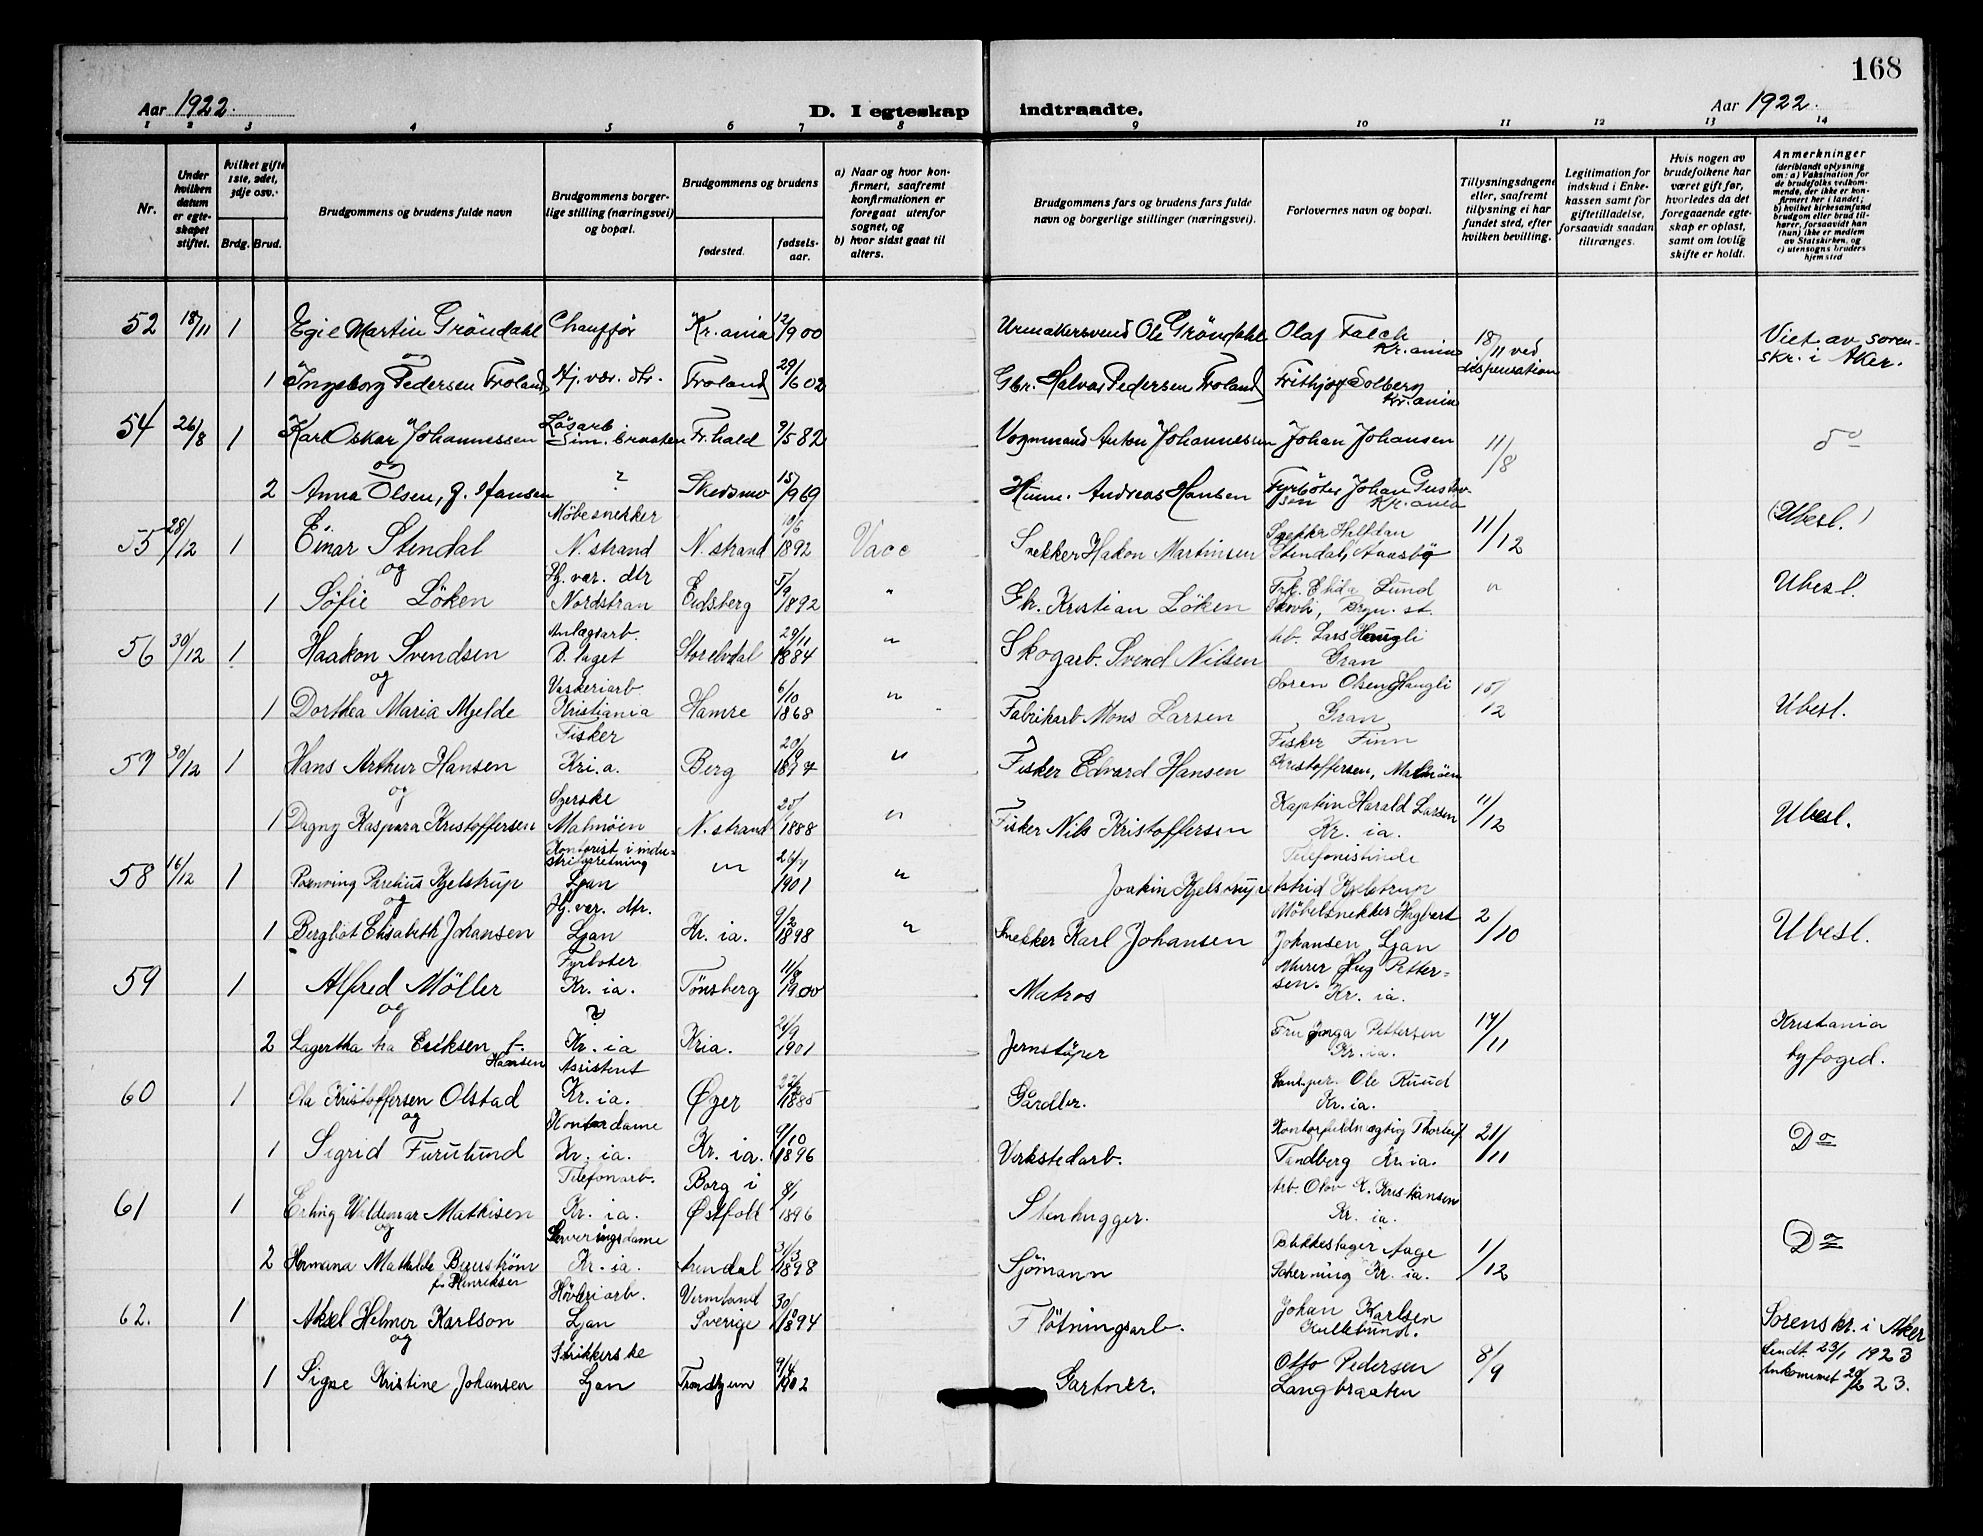 168
Aar 1922. D. I egteskap indtraadte. Aar 1922.
1 2 3 4 5 6 7 8 9 10 11 12 13 14
Nr.
Under hvilken datum er egteskapet stiftet.
Hvilket gifte 1ste, 2det, 3dje osv.
Brdg. Brud.
Brudgommens og brudens fulde navn
Brudgommens borgerlige stilling (næringsvei) og bopæl.
Brudgommens og brudens
fødested.
fødselsaar.
a) Naar og hvor konfirmert, saafremt konfirmationen er foregaat utenfor sognet, og
b) hvor sidst gaat til alters.
Brudgommens fars og brudens fars fulde navn og borgerlige stillinger (næringsvei).
Forlovernes navn og bopæl.
Tillysningsdagene eller, saafremt tillysning ei har fundet sted, efter hvilken bevilling.
Legitimation for indskud i Enkekassen samt for giftetilladelse, forsaavidt saadan tiltrænges.
Hvis nogen av brudefolkene har været gift før, hvorledes da det foregaaende egteskap er opløst, samt om lovlig skifte er holdt.
Anmerkninger
(deriblandt oplysning om: a) Vaksination for de brudefolks vedkommende, der ikke er konfirmert her i landet; b) hvilket kirkesamfund brudgom eller brud tilhører, forsaavidt han (hun) ikke er medlem av Statskirken, og c) utensogns bruders hjemsted
52 18/11 1 Egil Martin Gröndahl Chauffør Kr.ania 12/9 00 Urmakersvend Ole Gröndahl Olaf Falch Kr.ania 18/11 ved dispensation Viet av sorenskr. i Aker.
og
1 Ingeborg Pedersen Froland Hj. vær. dtr. Froland 29/6 02 Gbr. Halvor Pedersen Froland Frithjof Solberg Kr.ania
54 26/8 1 Karl Oskar Johannessen Løsarb Sim. braaten Fr.hald 9/5 82 Vognmand Anton Johannesen Johan Johansen 11/8 do
og
2 Anna Olsen, g. Hansen ? Skedsmo 15/9 69 Husm. Andreas Hansen Fyrböter Johan Gustavsen Kr.ania
55 28/12 1 Einar Stendal Møbesnekker N. strand N. strand 10/6 1892 Vacc Snekker Hakon Martinsen Snekker Halfdan Stendal, Aasbö 11/12 (Ubesl.)
og
1 Sofie Löken Hj. var. dtr Nordstran Eidsberg 5/9 1892 " Gb. Kristian Löken Frk. Lund Skovli, Bryn. st. " Ubesl.
56 30/12 1 Haakon Svendsen Anlægsarb. B. laget Storelvdal 29/11 1884 " Skogarb. Svend Nilsen Arb. Lars Haugli Gran
og
1 Dorthea Maria Mjelde Vaskeriarb Kristiania Hamre 6/10 1868 " Fabrikarb Mons Larsen Soren Olsen Haugli Gran 15/12 Ubesl.
57 30/12 1 Hans Arthur Hansen Fisker Kri.a. Berg 20/9 " Fisker Edvard Hansen Fisker Finn Kristoffersen, Malmöen
og
1 Dagny Kaspara Kristoffersen Syerske Malmöen N. strand 1888 " Fisker Nils Kristoffersen Kaptein Harald Larsen Kr. ia. 11/12 Ubesl.
58 16/12 1 Kjelstrup Kontorist i industriforretning Ljan " 1901 " Joakim Kjelstrup Telefonistinde Astrid Kjelstrup
og
1 Bergliot Elisabeth Johansen Hj. var. dtr. Ljan Kr. ia. 9/2 1898 " Snekker Karl Johansen Möbelsnekker Hagbart Johansen Ljan 2/10 Ubesl.
59 1 Alfred Möller Fyrboter Kr. ia. Tönsberg 11/8 1900 Matros Murer Pettersen. Kr. ia.
og
2 Lagertha Eriksen f. Hansen ? Kr. ia Kria. 1901 Jernstöper Fru Inga Pettersen Kr. ia. 17/11 Kristania byfoged.
60 1 Ola Kristoffersen Olstad Assistent Kr. ia. Øyer 1885 Gårdbr. Ole Ruud Kr. ia.
og
1 Sigrid Furulund Kontordame Kr. ia. Kr. ia. 9/10 1896 Verkstedarb. Kontorfuldmægtig Thorleif Tandberg Kr. ia. 21/11 Do
61 1 Erling Waldemar Mathisen Telefonarb. Kr. ia. Borg i Østfold 8/1 1896 Stenhugger. Arb. Olov K. Kristiansen Kr. ia.
og
2 Hermana Mathilde Bergström f. Henriksen Serveringsdame Kr. ia. Arendal 31/3 1898 Sjömann Blikkeslager Aage Scherning Kr. ia. 1/12 Do
62. 1 Aksel Helmer Karlson Höveriarb. Ljan Vermland Sverige 1894 Flötningsarb. Johan Karlsen Kullebund. Sorenskr. i Aker
og
1 Signe Kristine Johansen Strikkerske Ljan Trondhjem 9/4 1902 Gartner. Otto Pedersen Langbraaten 8/9 Sendt 23/1 1923
Ankommet 20/2 23.